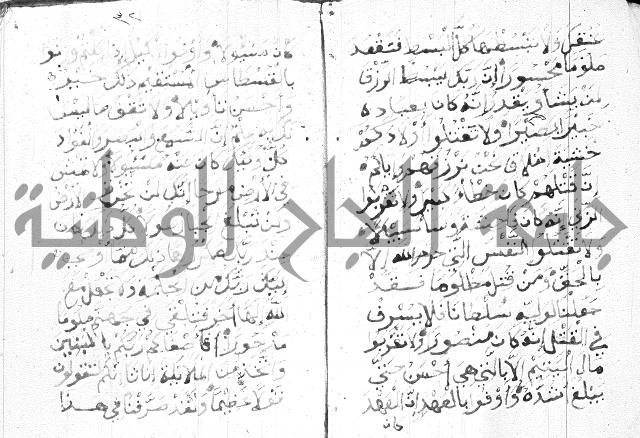 عنقك ولا تبسطها كل البسط فتقعد
ملوما محسورا إن ربك يبسط الرزق
لمن يشاء ويقدر إنه كان بعباده
خبيرا بصيرا ولا تقتلوا أولادكم
خشية إملاق نحن نرزقهم وإياكم
إن قتلهم كان خطئا كبيرا ولا تقربوا
الزنى إنه كان فاحشة وساء سبيلا
ولا تقتلوا النفس التي حرم الله إلا
بالحق ومن قتل مظلوما فقد
جعلنا لوليه سلطانا فلا يسرف
في القتل إنه كان منصورا ولا تقربوا
مال اليتيم إلا بالتي هي أحسن حتى
يبلغ أشده وأوفوا بالعهد إن العهد
كان
كان مسئولا وأوفوا الكيل إذا كلتم وزنوا
بالقسطاس المستقيم ذلك خير
وأحسن تأويلا ولا تقف ما ليس
لك به علم إن السمع والبصر والفؤاد
كل أولئك كان عنه مسئولا ولا تمش
في الأرض مرحا إنك لن تخرق الأرض
ولن تبلغ الجبال طولا كل ذلك كان
عند ربك مما أوحى
إليك ربك من الحكمة ولا تجعل مع
الله إلها آخر فتلقى في جهنم ملوما
مدحورا أفأصفاكم ربكم بالبنين
واتخذ من الملائكة إناثا إنكم لتقولون
قولا عظيما ولقد صرفنا في هذا
جامعة النجاح الوطنية